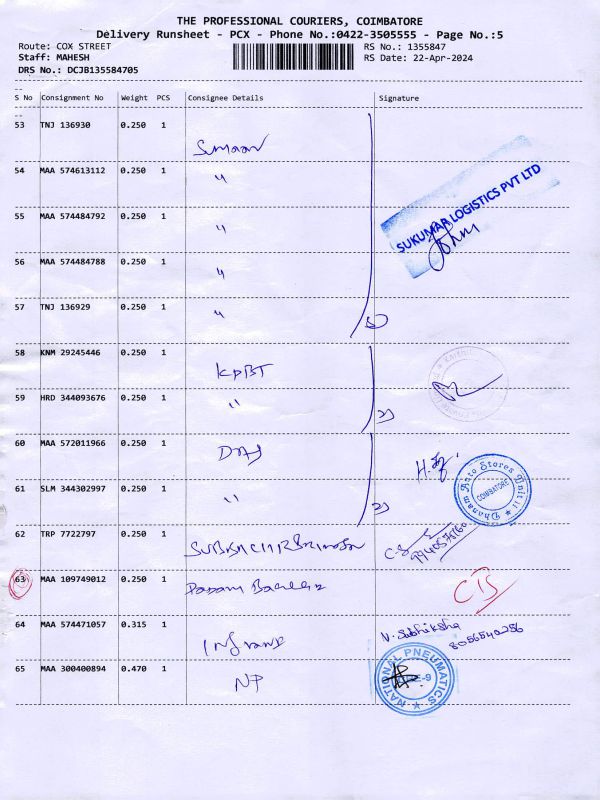 THE PROFESSIONAL COURIERS, COIMBATORE
Delivery Runsheet - PCX - Phone No.:0422-3505555 - Page No.:5
Route: COX STREET
RS No.: 1355847
Staff: MAHESH
RS Date: 22-Apr-2024
DRS No.: DCJB135584705
S No Consignment No Weight PCS Consignee Details Signature
53 TNJ 136930 0.250 1
54 MAA 574613112 0.250 1 "
SUKUMAR LOGISTICS PVT LTD
55 MAA 574484792 0.250 1 "
56 MAA 574484788 0.250 1 "
57 TNJ 136929 0.250 1 "
5
58 KNM 29245446 0.250 1 KPBT
59 HRD 344093676 0.250 1 "
2)
60 MAA 572011966 0.250 1
61 SLM 344302997 0.250 1 "
2)
Dhanam Auto Stores Unit II
COIMBATORE
62 TRP 7722797 0.250 1
63 MAA 109749012 0.250 1
64 MAA 574471057 0.315 1 V. Subhiksha
8056540256
65 MAA 300400894 0.470 1 NP
NATIONAL PNEUMATICS